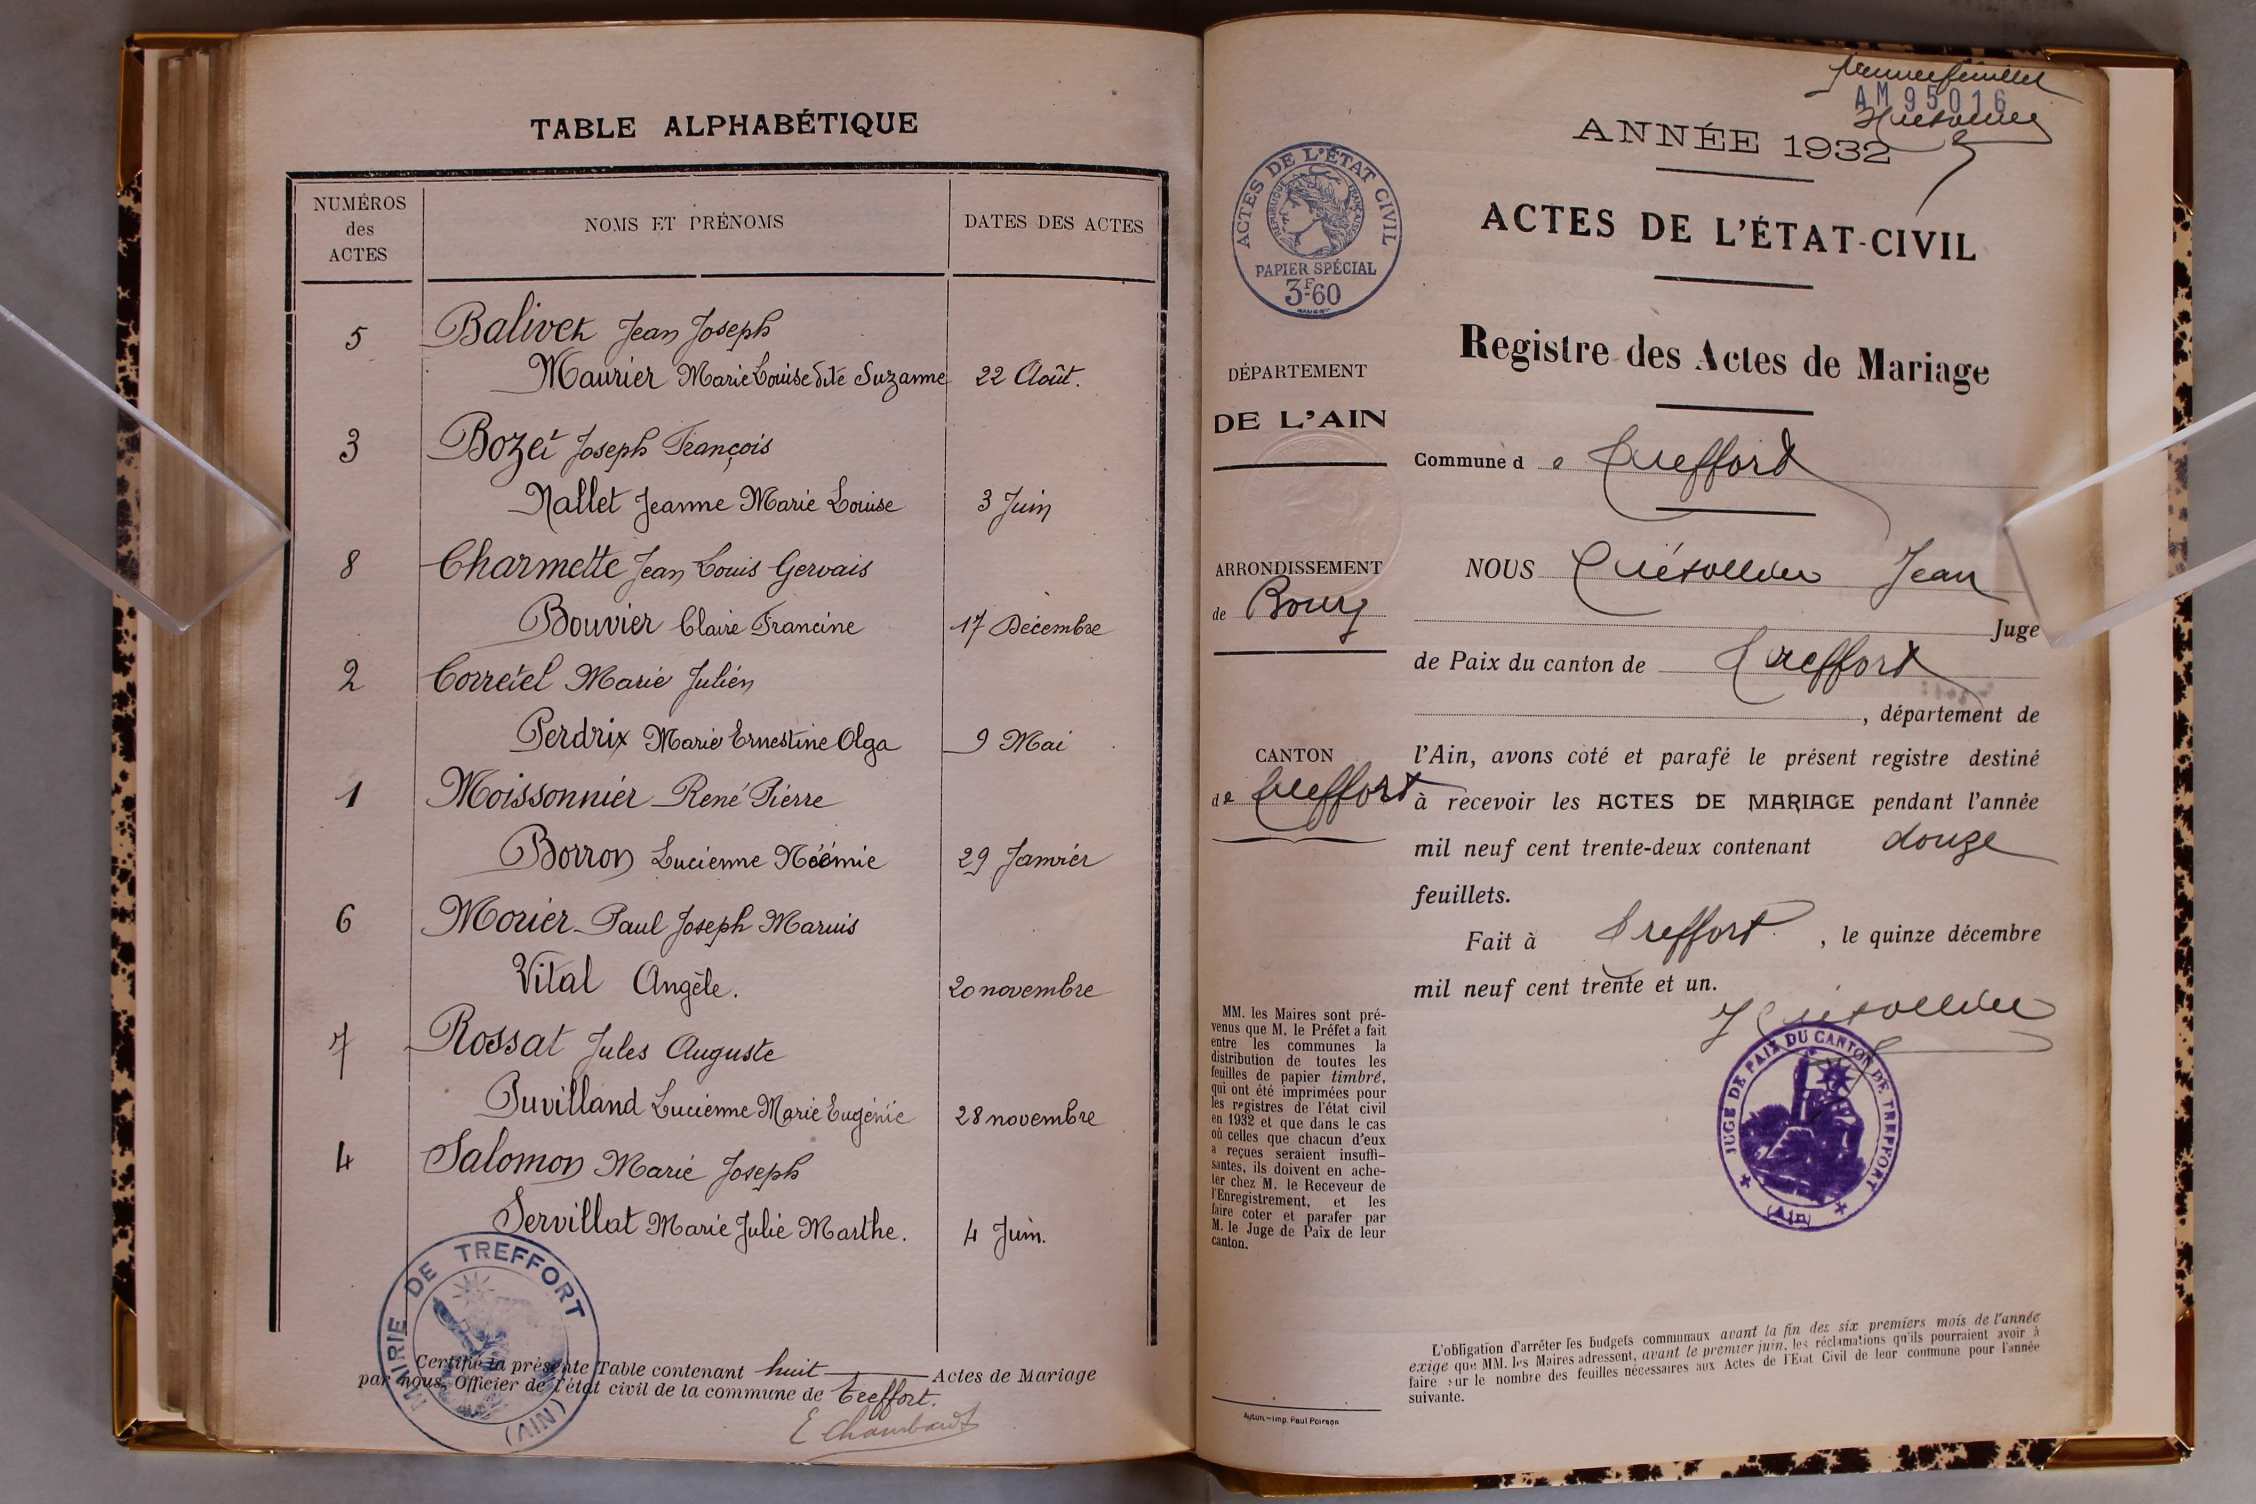 TABLE ALPHABÉTIQUE
NUMÉROS
des
ACTES
NOMS ET PRÉNOMS
DATES DES ACTES
5 Balivet Jean Joseph
Maurier Marie Louise dite Suzanne 22 Août.
3 Bozet Joseph François
Nallet Jeanne Marie Louise 3 Juin
8 Charmette Jean Louis Gervais
Bouvier Claire Francine 17 Décembre
2 Corretel Marie Julien
Perdrix Marie Ernestine Olga 9 Mai
1 Moissonnier René Pierre
Borron Lucienne Noémie 29 Janvier
6 Morier Paul Joseph Marius
Vital Angèle. 20 novembre
7 Rossat Jules Auguste
Puvilland Lucienne Marie Eugénie 28 novembre
4 Salomon Marie Joseph
Servillat Marie Julie Marthe. 4 Juin.
MAIRIE DE TREFFORT
(AIN)
Certifié la présente Table contenant huit Actes de Mariage
par nous, Officier de l'état civil de la commune de Treffort.
E Chambard
AM95016
ANNÉE 1932
ACTES DE L'ÉTAT CIVIL
RÉPUBLIQUE FRANÇAISE
PAPIER SPÉCIAL
3F60
ACTES DE L'ÉTAT-CIVIL
Registre des Actes de Mariage
DÉPARTEMENT
DE L'AIN
Commune de Treffort
ARRONDISSEMENT
de Bourg
CANTON
de Treffort
NOUS Jean
Juge
de Paix du canton de Treffort
, département de
l'Ain, avons coté et parafé le présent registre destiné
à recevoir les ACTES DE MARIAGE pendant l'année
mil neuf cent trente-deux contenant douze
feuillets.
Fait à Treffort, le quinze décembre
mil neuf cent trente et un.
JUGE DE PAIX DU CANTON DE TREFFORT
(Ain)
MM. les Maires sont pré-
venus que M. le Préfet a fait
entre les communes la
distribution de toutes les
feuilles de papier timbré,
qui ont été imprimées pour
les registres de l'état civil
en 1932 et que dans le cas
où celles que chacun d'eux
a reçues seraient insuffi-
santes, ils doivent en ache-
ter chez M. le Receveur de
l'Enregistrement, et les
faire coter et parafer par
M. le Juge de Paix de leur
canton.
Autun.—Imp. Paul Poirson
L'obligation d'arrêter les budgets communaux avant la fin des six premiers mois de l'année
exige que MM. les Maires adressent, avant le premier juin, les réclamations qu'ils pourraient avoir à
faire sur le nombre des feuilles nécessaires aux Actes de l'Etat Civil de leur commune pour l'année
suivante.